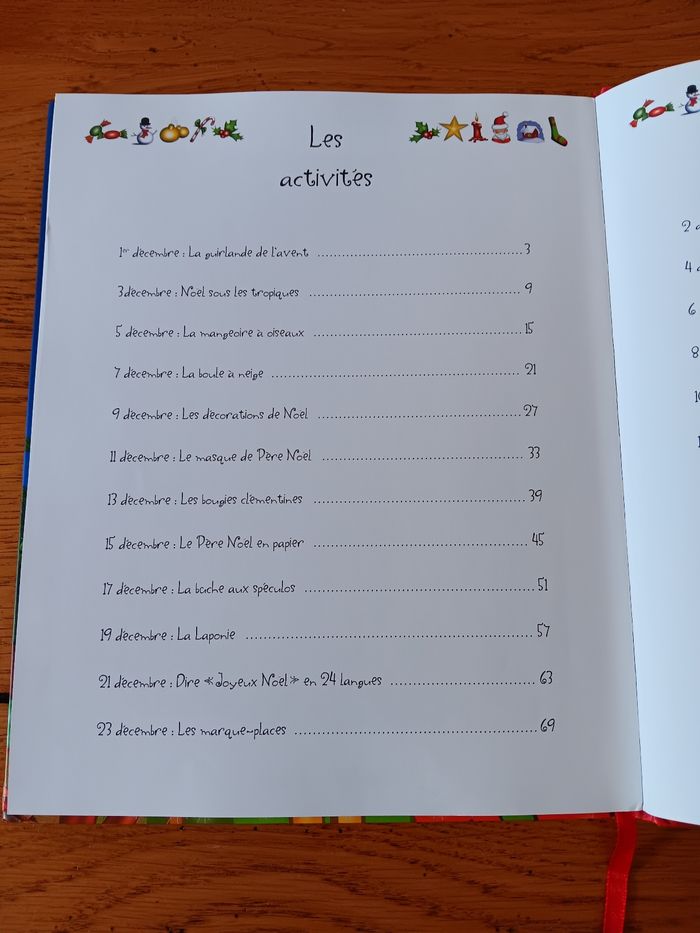 Les
activités
1er décembre : La guirlande de l'avent ........................................ 3
3décembre : Noël sous les tropiques ........................................ 9
5 décembre : La mangeoire à oiseaux ........................................ 15
7 décembre : La boule à neige ........................................ 21
9 décembre : Les décorations de Noël ........................................ 27
11 décembre : Le masque de Père Noël ........................................ 33
13 décembre : Les bougies clémentines ........................................ 39
15 décembre : Le Père Noël en papier ........................................ 45
17 décembre : La bûche aux spéculos ........................................ 51
19 décembre : La Laponie ........................................ 57
21 décembre : Dire «Joyeux Noël» en 24 langues ........................................ 63
23 décembre : Les marque-places ........................................ 69
2
4
6
8